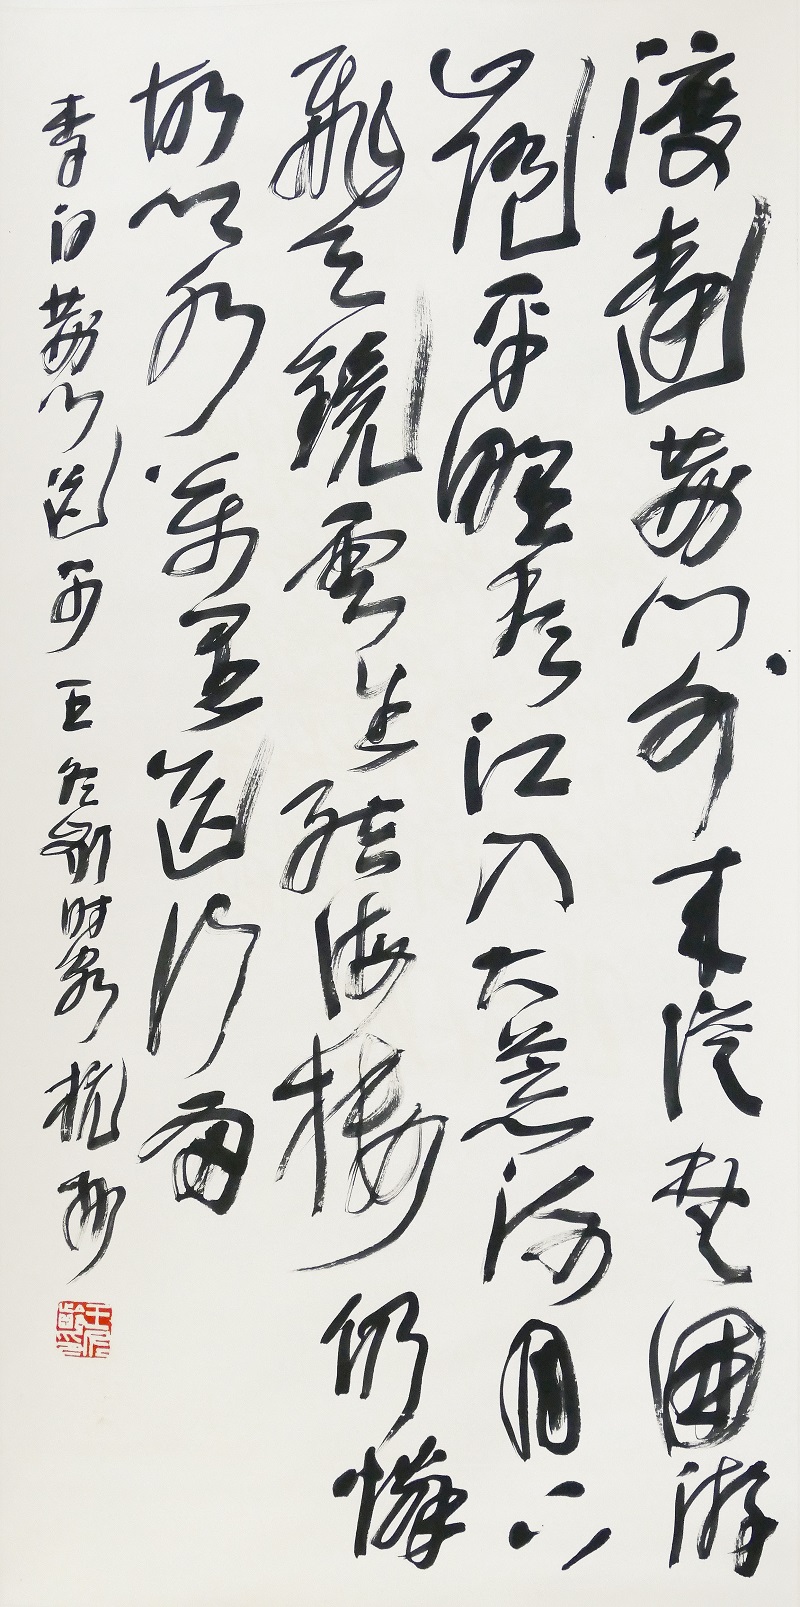 渡遠荊門外来從楚國游
山隨平野盡江入大荒流月下
飛天鏡雲生結海樓仍憐
故鄉水萬里送行舟
李白荊門送 王冬齡時客杭州
王冬齡印